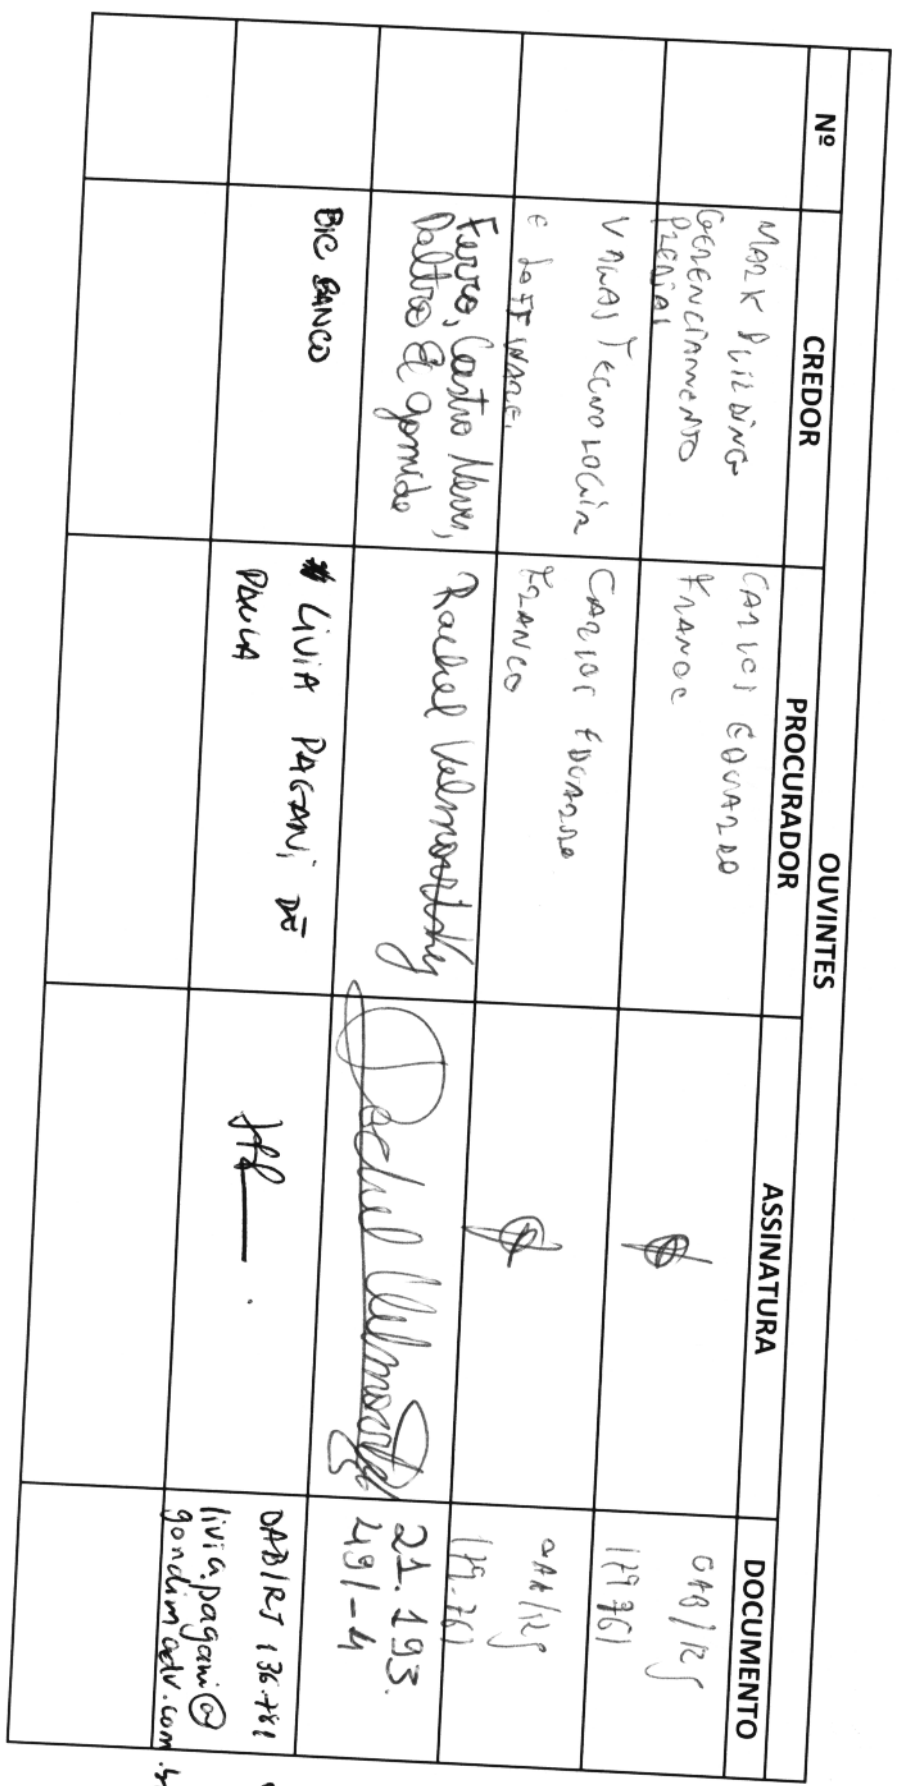 OUVINTES
Nº CREDOR PROCURADOR ASSINATURA DOCUMENTO
MARK BUILDING
GERENCIAMENTO
PREDIAL
CARLOS EDUARDO
FRANCO
OAB/RS
VARGAS TECNOLOGIA
E SOFTWARE.
CARLOS EDUARDO
FRANCO
OAB/RS
Ferro, Castro Neves,
Daltro & Gomide
Rachel
Rachel
21.193.
491-4
BIC BANCO
LIVIA PAGANI DE
PAULA
OAB/RJ 136.781
livia.pagani@
gondimadv.com.br